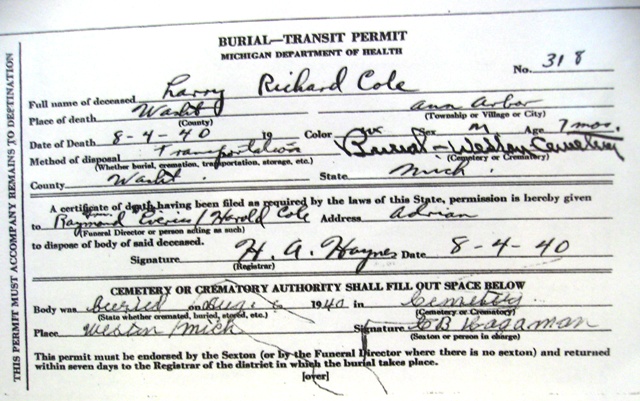 BURIAL—TRANSIT PERMIT
MICHIGAN DEPARTMENT OF HEALTH
No. 318
Full name of deceased Larry Richard Cole
Place of death Washt. Ann Arbor
(County) (Township or Village or City)
Date of Death 8-4-40 19 Color Sex M Age 7 mos.
Method of disposal Transportation Burial - Weston Cemetery
(Whether burial, cremation, transportation, storage, etc.) (Cemetery or Crematory)
County Washt. State Mich.
A certificate of death having been filed as required by the laws of this State, permission is hereby given
to Raymond / Harold Cole Address Adrian
(Funeral Director or person acting as such)
to dispose of body of said deceased.
Signature H. A. Haynes Date 8-4-40
(Registrar)
CEMETERY OR CREMATORY AUTHORITY SHALL FILL OUT SPACE BELOW
Body was buried on Aug 6 1940 in Cemetery
(State whether cremated, buried, stored, etc.) (Cemetery or Crematory)
Place Weston Mich Signature C B Wagaman
(Sexton or person in charge)
This permit must be endorsed by the Sexton (or by the Funeral Director where there is no sexton) and returned
within seven days to the Registrar of the district in which the burial takes place.
[over]
THIS PERMIT MUST ACCOMPANY REMAINS TO DESTINATION